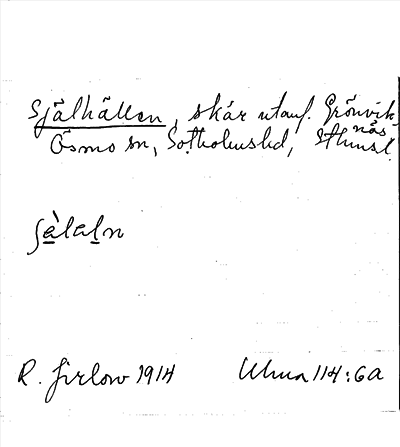 Själhällen, skär utanf. Grönvik-
näs
Ösmo sn, Sotholmshd, Sthmsl.
ʃälaln
R. Jirlow 1914 Uluma 114:6a